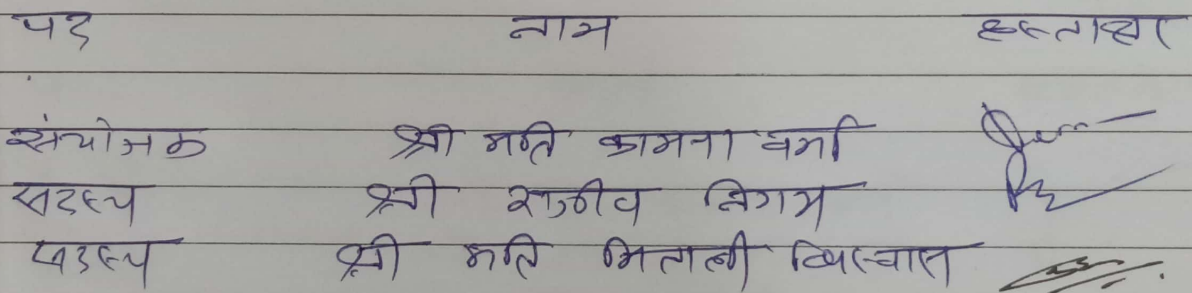 पद नाम हस्ताक्षर
संयोजक श्री मति कामना वर्मा
सदस्य श्री राजीव निगम
सदस्य श्री मति मिताली विस्वास